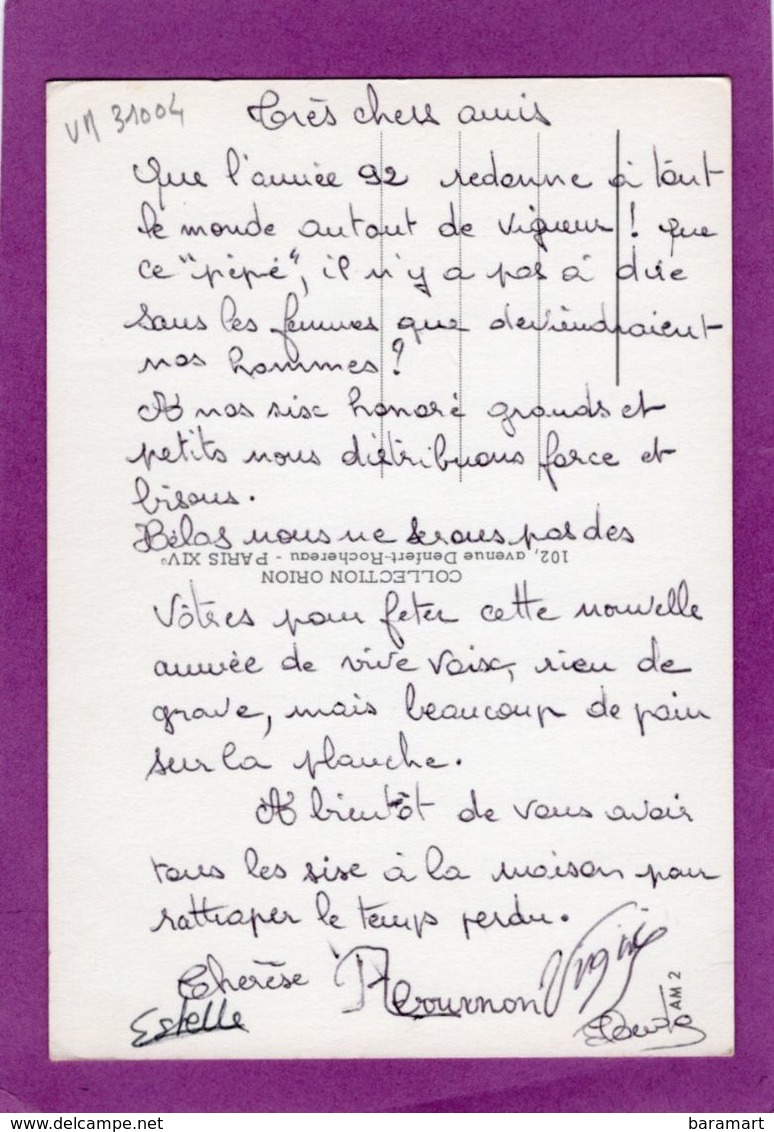 VM 31004
Très chers amis
Que l'année 92 redonne à tout
le monde autant de vigueur ! que
ce "pépé", il n'y a pas à dire
sans les femmes que deviendraient
nos hommes ?
A nos six honoré grands et
petits nous distribuons force et
bisous.
Hélas nous ne serons pas des
102, avenue Denfert-Rochereau - PARIS XIVe
COLLECTION ORION
Vôtres pour feter cette nouvelle
année de vive voix, rien de
grave, mais beaucoup de pain
sur la planche.
A bientôt de vous avoir
tous les six à la maison pour
rattraper le temps perdu.
Therèse
Virginie
Estelle
AM 2
delcampe.net
baramart